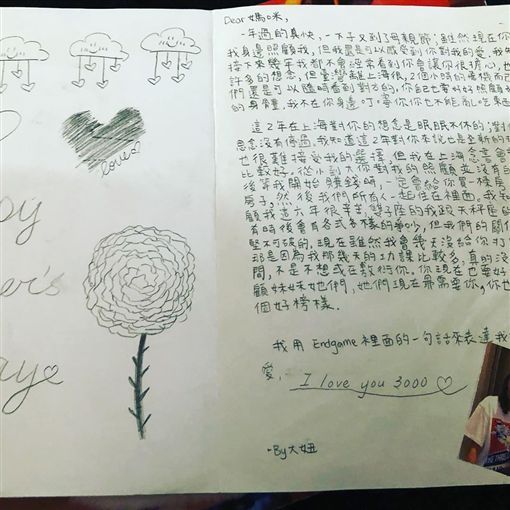 py
er's
ay
love
Dear 媽咪,
一年過的真快,一下子又到了母親節;雖然現在你
我身邊照顧我,但我還是可以感受到你對我的愛,我知
接下來幾年我都不會經常看到你會讓你很擔心,也
許多的想念,但臺灣離上海很,2個小時的飛機而已
們還是可以隨時看到對方的,你自己也要好好照顧好
的身體,我不在你身邊叮嚀你你也不能亂吃東西
這2年在上海對你的想念是眠眠不休的;對你
思念沒有停過,我知道這2年對你來說也是全新的
也很難接受我的選擇,但我在上海念書會
比較好。從小到大你對我的照顧並沒有
後等我開始賺錢時,一定會給你買一棟房
房子,然後我們所有人一起住在裡面,我知
顧我這六年很辛苦,雙子座的我跟天秤座的
有時後會有各式各樣的爭吵,但我們的關係
堅不可破的,現在雖然我會幾天沒給你打
那是因為我那幾天的功課比較多,真的沒
間,不是不想或在敷衍你。你現在也要好
顧妹妹她們,她們現在最需要你,你也
個好榜樣.
我用 Endgame 裡面的一句話來表達我
愛,
I love you 3000
-By大妞